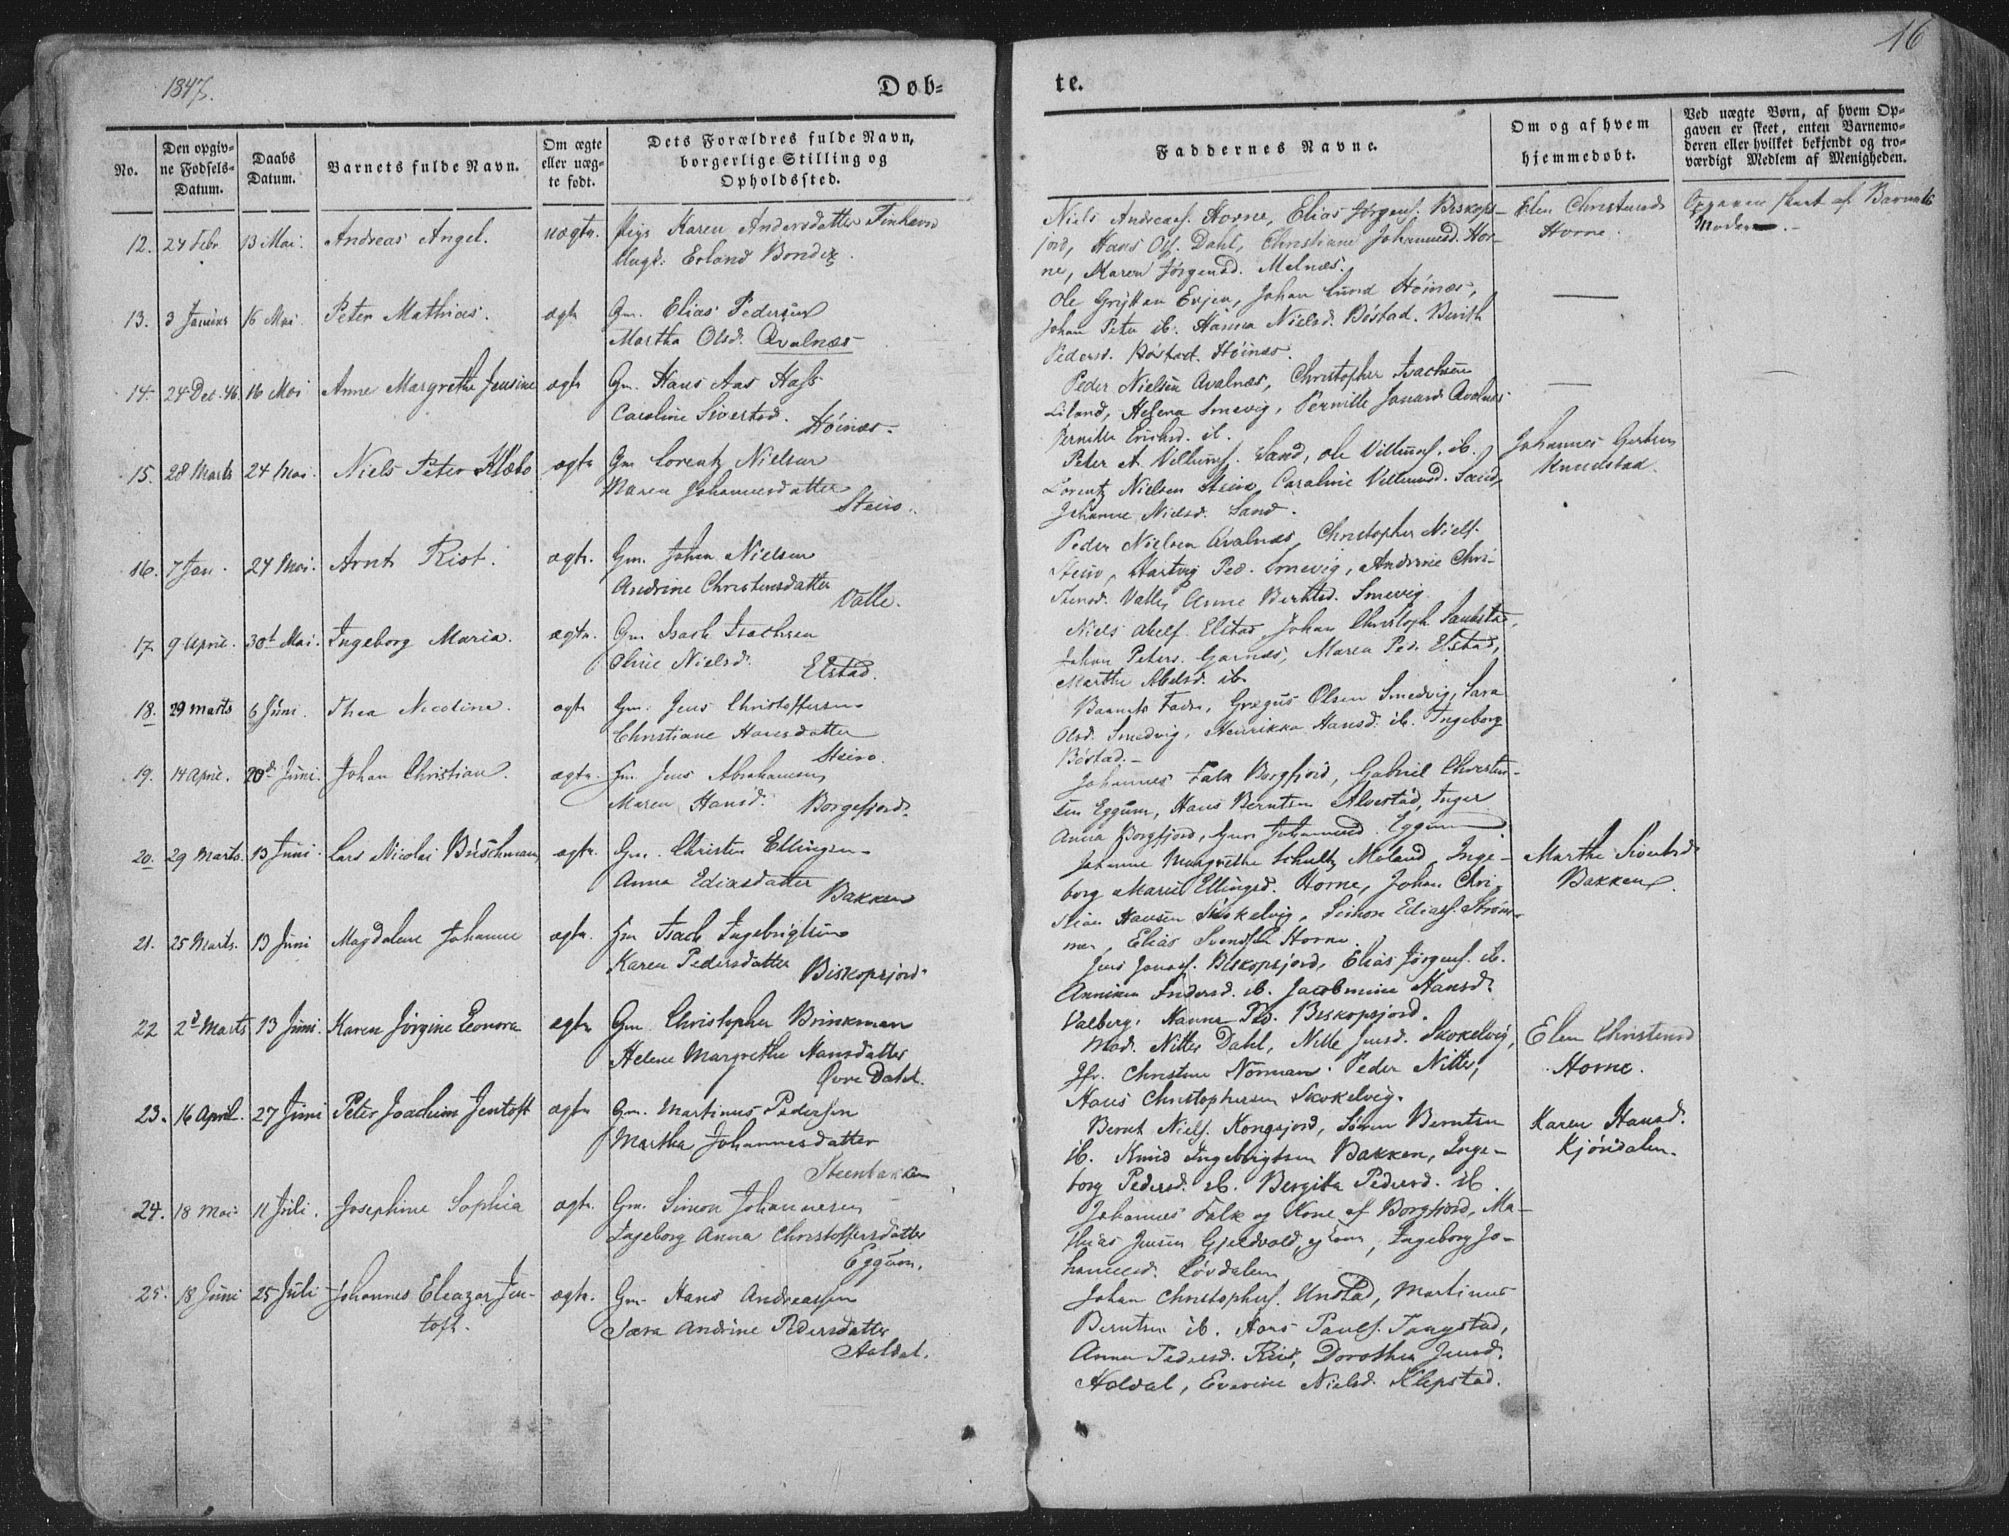 1847.
Døb=
te.
16
No.
Den opgiv=
ne Fødsels=
Datum.
Daabs
Datum.
Barnets fulde Navn.
Om ægte
eller uæg=
te født.
Dets Forældres fulde Navn,
borgerlige Stilling og
Opholdssted.
Faddernes Navne.
Om og af hvem
hjemmedøbt.
Ved uægte Børn, af hvem Op=
gaven er skeet, enten Barnemo=
deren eller hvilket bekjendt og tro=
værdigt Medlem af Menigheden.
12. 24 Febr. 13 Mai. Andreas Angel. uægte. Pige Karen Andersdatter Finhavn
Ungk. Erland Bonde
Niels Andreasf. Horne, Elias Jørgens. Biskops-
jord, Hans Ols. Dahl, Christiane Johannesd. Hor-
ne, Maren Jørgensd. Melnæs.
Elen Christensd.
Horne.
Opgaven skeet af Barnets
Moder.
13. 3 Januar 16 Mai. Peter Mathias. ægte Gm. Elias Pedersen
Martha Olsd. Qvalnæs
Ole Gryttan Evjen, Johan Lund Höinæs,
Johan Peter ib. Hanna Nielsd. Böstad. Berith
Pedersd. Böstad. Höinæs.
14. 24 Dec. 46. 16 Mai Anne Margrethe Jensine ægte Gm. Hans Aas Hass
Caroline Sivertsd. Höinæs.
Peder Nielsen Qvalnæs, Christopher Isachsen
Liland, Helena Smevig, Pernille Jonasd. Qvalnæs
Pernille Erichsd. ib.
15. 28 Marts 24 Mai. Niels Peter Klæbo ægte Gm Lorentz Nielsen
Maren Johannesdatter
Steiro.
Peter A. Villumsf. Sand, Ole Villumsf. ib.
Lorentz Nielsen Steiro, Caroline Villumsd. Sand,
Johanne Nielsd. Sand.
Johannes Gertsen
Knudstad.
16. 7 Jan. 24 Mai. Arnt Rist. ægte. Gm. Johan Nielsen
Andrine Christensdatter
Valle.
Peder Nielsen Qvalnæs, Christopher Nielsf.
Steiro, Hartvig Ped. Smevig, Andrine Chri-
stensd. Valle, Anne Berntsd. Smevig.
17. 9 April. 30t Mai. Ingeborg Maria. ægte. Gm Isach Isachsen
Oline Nielsd. Elstad.
Niels Abelf. Elstad, Johan Christoph. Sandstad,
Johan Peters. Garnæs, Maren Ped. Elstad,
Marthe Abelsd. ib.
18. 29 Marts 6 Juni. Thea Nicoline. ægte Gm. Jens Christoffersen
Christiane Hansdatter
Steiro.
Barnets Fader, Gregus Olsen Smedvig, Sara
Olsd. Smedvig, Henrikke Hansd. ib. Ingeborg
Böstad.
19. 14 April. 20d Juni. Johan Christian. ægte. Gm. Jens Abrahamsen
Maren Hansd. Borgefjord.
Johannes Falk Borgfjord, Gabriel Christen-
sen Eggum, Hans Berntsen Alvestad, Inger
Anna Borgfjord, Johannesd. Eggum
20. 29 Marts. 13 Juni. Lars Nicolai Büschmann ægte. Gm. Christen Ellingsen
Anna Eliasdatter
Bakken
Johanne Margrethe Schultz Moland, Inge-
borg Marie Ellingsd. Horne, Johan Chri-
stian Hansen Skokelvig, Simon Eliasf. Ström-
men, Elias Svendsen Horne.
Marthe Sivertsd.
Bakken.
21. 25 Marts. 13 Juni Magdalene Johanne ægte. Gm Isach Ingebrigtsen
Karen Pedersdatter Biskopsjord.
Jens Jonasf. Biskopsjord, Elias Jørgenf. ib.
Anniken Andersd. ib. Jacobmine Hansd.
Valberg, Hanna Ped. Biskopsjord.
22 2d Marts 13 Juni. Karen Jørgine Leonora ægte Gm. Christopher Brinkman
Helene Margrethe Hansdatter
Øvre Dahl.
Mad. Nitter Dahl, Nille Jensd. Skokelvig,
Jfr. Christine Norman. Peder Nitter,
Hans Christophersen Skokelvig.
Elen Christensd
Horne.
23. 16 April. 27 Juni Peter Joachim Jentoft ægte Gm. Martinus Pedersen
Martha Johannesdatter
Steenbakken
Bernt Nielf. Kongsjord, Sören Berntsen
ib. Knud Ingebrigtsen Bakken, Inge-
borg Pedersd. ib. Bergitha Pedersd. ib.
Karen Hansd.
Kjöridalen.
24. 18 Mai 11 Juli. Josephine Sophia ægte. Gm. Simon Johannesen
Ingeborg Anna Christoffersdatter
Eggum.
Johannes Falk og Kone af Borgfjord, Ma-
thias Jensen Gjeldvold og Kone, Ingeborg Jo-
hannesd. Lövdalen
25. 18 Juni 25 Juli Johannes Eleazar Jen-
toft. ægte. Gm. Hans Andreassen
Sara Andrine Pedersdatter
Holdal.
Johan Christophers. Unstad, Martinus
Berntsen ib. Hans Paulf. Tangstad,
Anne Pedersd. Ries, Dorothea Jensd.
Holdal, Everine Nielsd. Klepstad.